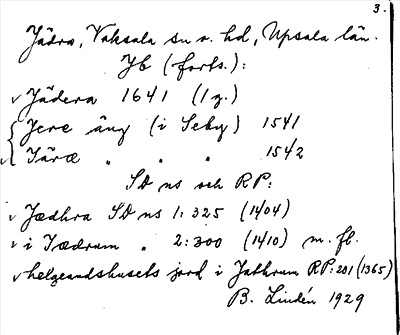 3.
Jädra, Vaksala sn o. hd, Upsala län.
Jb (forts.):
✓ Jädera 1641 (1 g.)
✓ { Jere äng (i Seby) 1541
Järæ " " " 1542
SD ns och RP:
✓ Jædhra SD ns 1:325 (1404)
✓ i Jædrum " 2:300 (1410) m. fl.
✓ helgeandshusets jord i Jathrum RP:201 (1365)
B. Lindén 1929